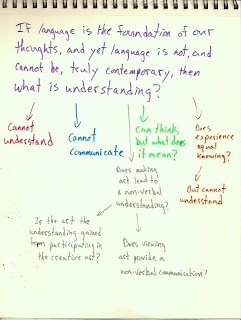 If language is the foundation of our
thoughts, and yet language is not, and
cannot be, truly contemporary, then
what is understanding?
Cannot
understand
Cannot
communicate
can think,
but what does
it mean?
Does
experience
equal
knowing?
But cannot
understand
Does making
art lead to
a non-verbal
understanding?
Is the art the
understanding gained
from participating in
the creative act?
Does viewing
art provide a
non-verbal communication?